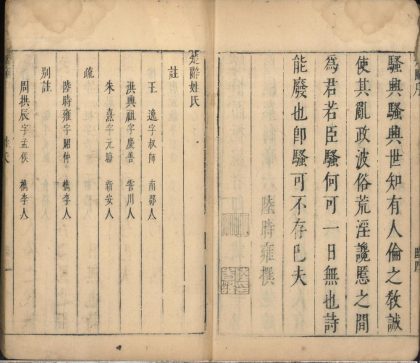 騷興騷興世知有人倫之教誠
使其亂政波俗荒淫讒慝之間
為君若臣騷何可一日無也詩
能廢也即騷可不存已夫
陸時雍撰
楚辭姓氏
註
王逸字叔師南郡人
洪興祖字慶善
朱熹字元晦新安人
疏
陸時雍字昭仲檇李人
別註
周拱辰字孟侯檇李人